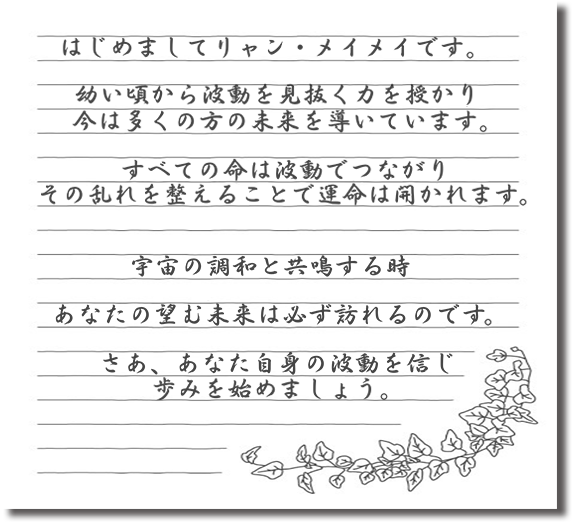 はじめましてリャン・メイメイです。
幼い頃から波動を見抜く力を授かり
今は多くの方の未来を導いています。
すべての命は波動でつながり
その乱れを整えることで運命は開かれます。
宇宙の調和と共鳴する時
あなたの望む未来は必ず訪れるのです。
さあ、あなた自身の波動を信じ
歩みを始めましょう。